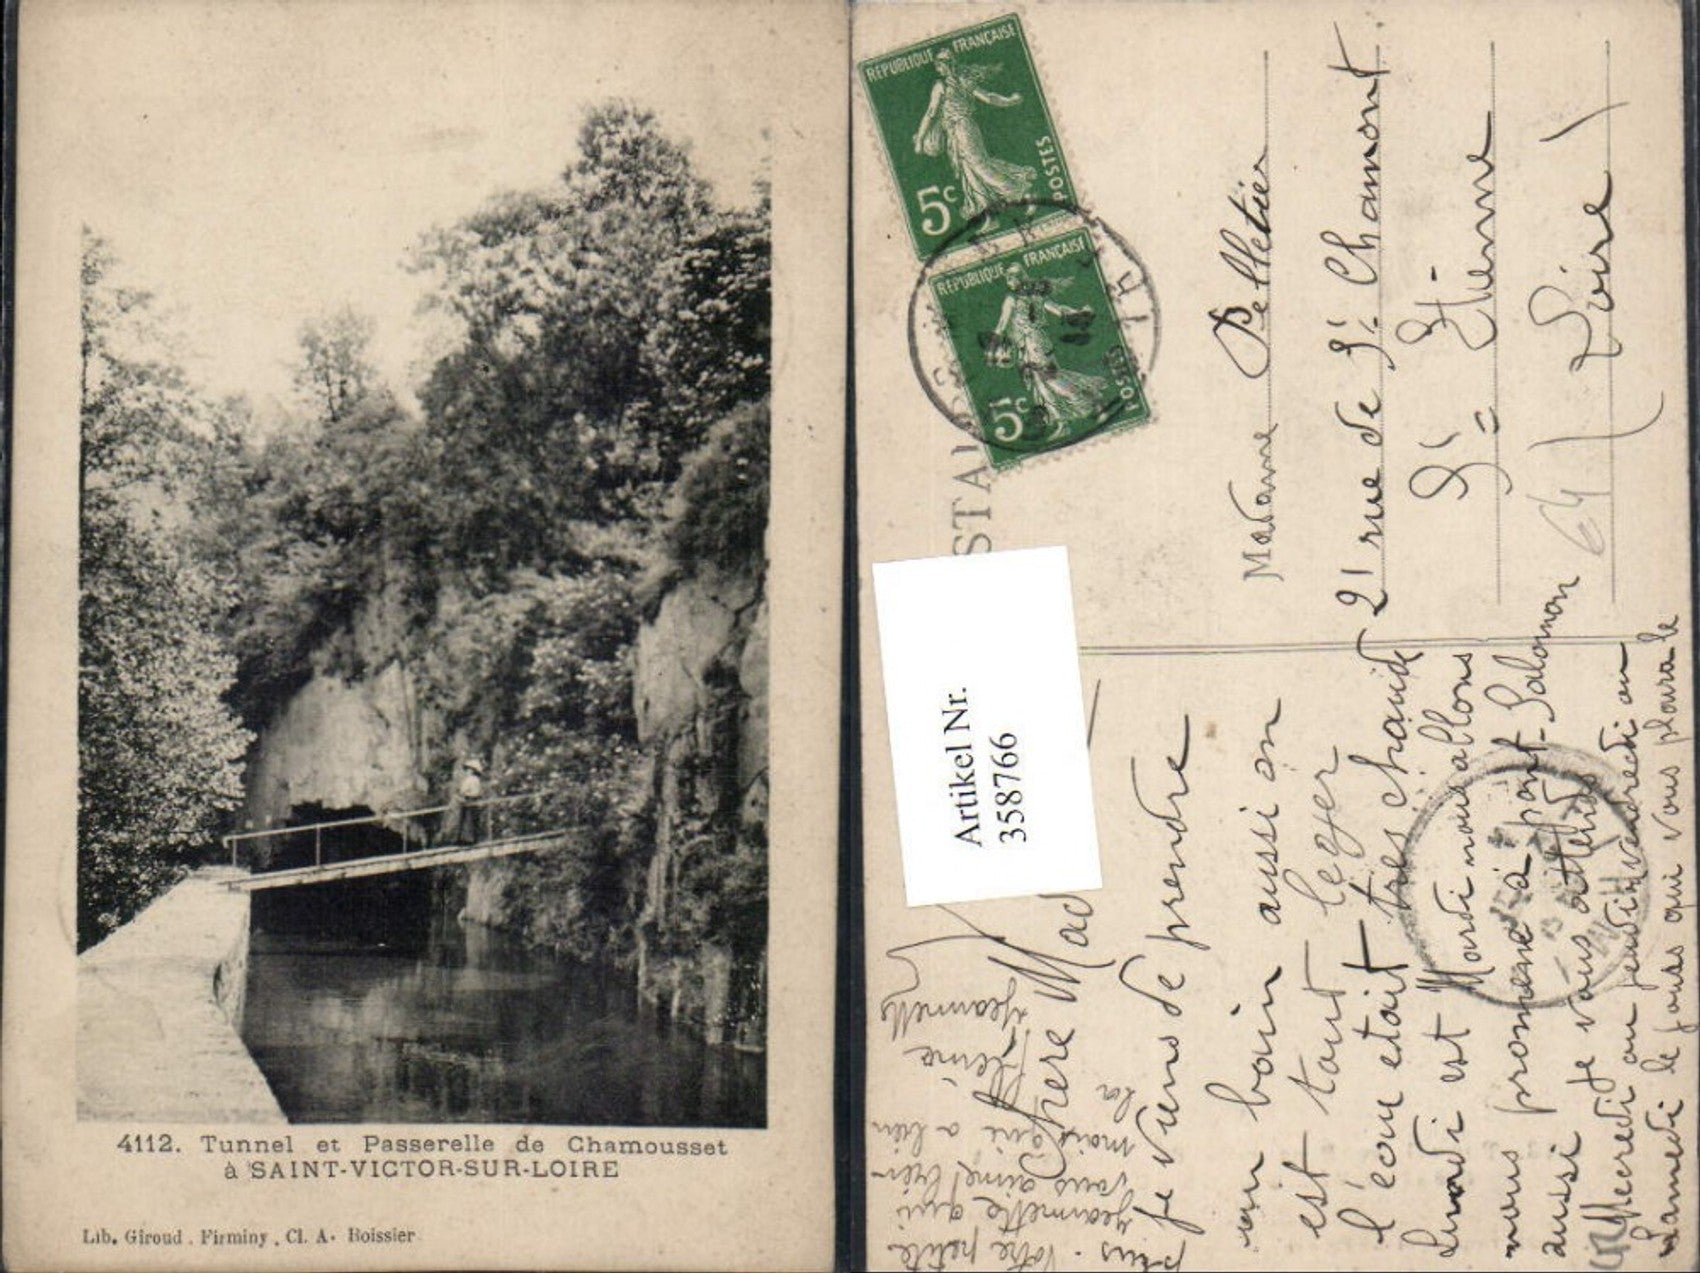 4112. Tunnel et Passerelle de Chamousset
à SAINT-VICTOR-SUR-LOIRE
Lib. Giroud . Firminy . Cl. A. Boissier
REPUBLIQUE FRANÇAISE
5c POSTES
REPUBLIQUE FRANÇAISE
5c POSTES
Artikel Nr.
358766
Madame Pelletier
21 rue de St Chamont
St Étienne
Loire
Chere Mad
je viens de prendre
un bain aussi on
est tout leger
l'eau etait tres chaude
Lundi est Mardi nous allons
nous promené à pont Salomon
aussi je vous attends
Mercredi au jeudi vendredi ou
Samedi le jours qui vous plaira le
plus. Votre petite
Jeannette qui
vous aime bien
mais qui a bien
la
flême
Jeannette